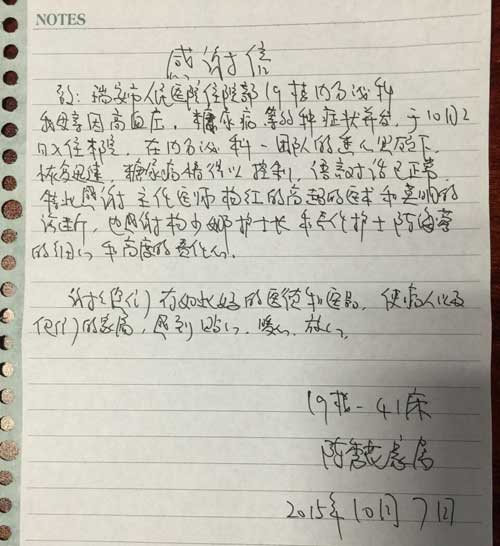 NOTES
感谢信
致：瑞安市人民医院住院部19楼内分泌科
我母亲因高血压，糖尿病等多种症状并发，于10月2
日入住本院，在内分泌科一团队的照下，
恢复迅速，糖尿病情得以控制，语言对话已正常，
特此感谢主任医师杨红的高超的医术和英明的
诊断，也感谢杨少娜护士长和责任护士陈海
的细心和高度的责任心。
谢谢他们有如此好的医德和医品，使病人以及
他们的家属，感到贴心，暖心，放心。
19楼-41床
陈家属
2015年10月7日